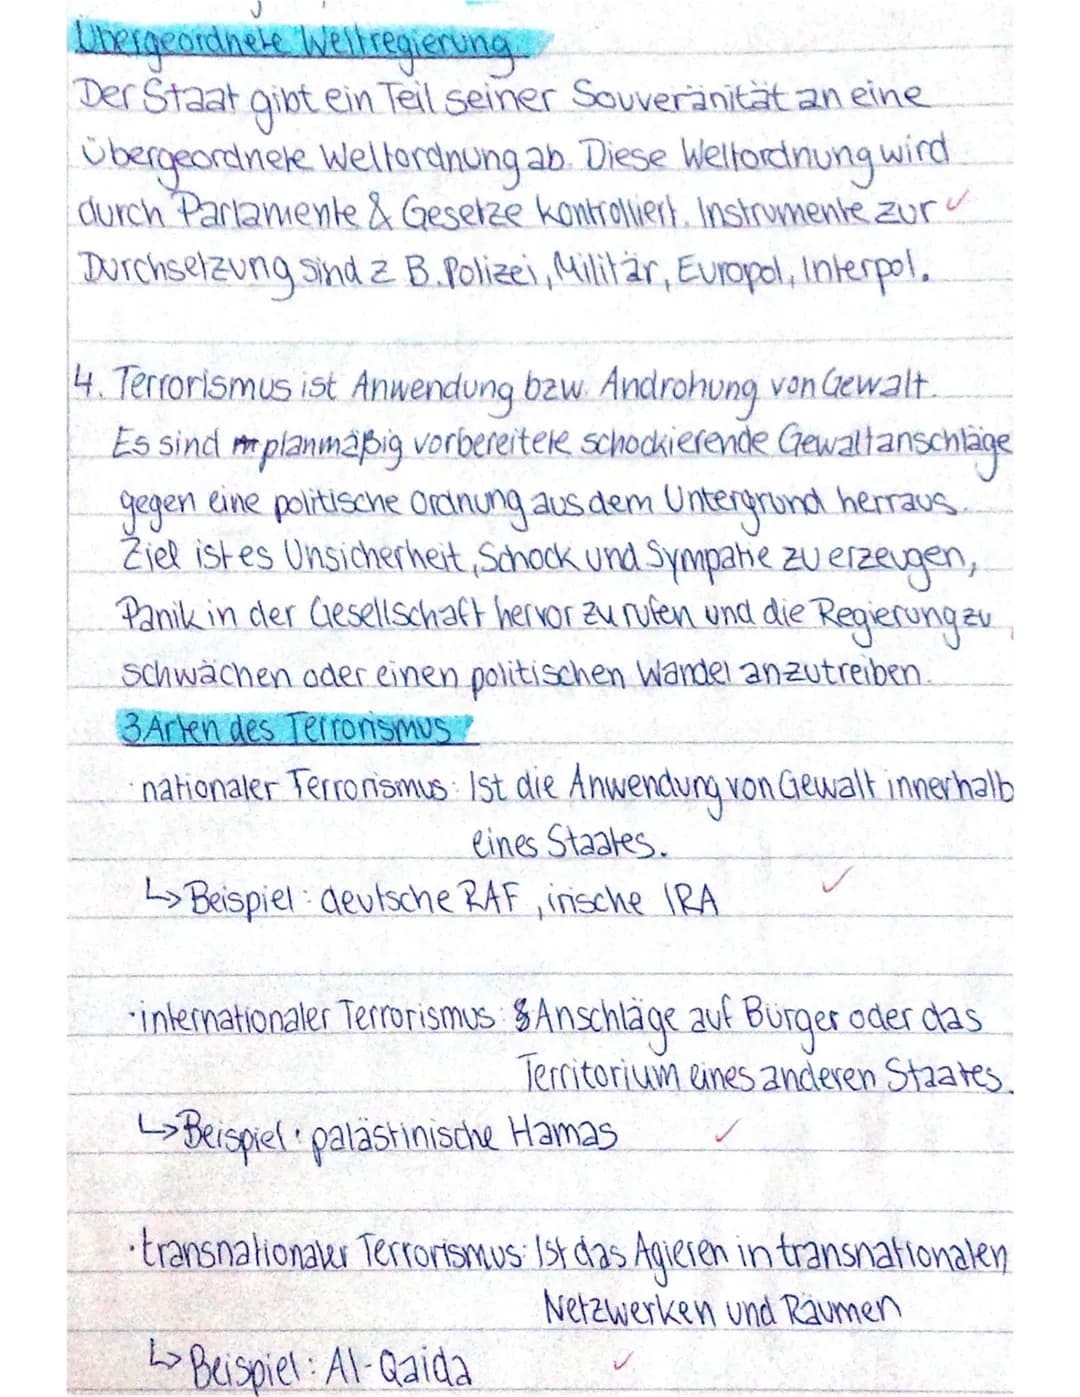 Übergeordnete Weltregierung
Der Staat gibt ein Teil seiner Souveränität an eine
übergeordnete Weltordnung ab. Diese Weltordnung wird
durch Parlamente & Gesetze kontrolliert. Instrumente zur
Durchsetzung sind z.B. Polizei, Militär, Europol, Interpol.
4. Terrorismus ist Anwendung bzw. Androhung von Gewalt.
Es sind planmäßig vorbereitete schockierende Gewaltanschläge
gegen eine politische Ordnung aus dem Untergrund herraus.
Ziel ist es Unsicherheit, Schock und Sympatie zu erzeugen,
Panik in der Gesellschaft hervor zu rufen und die Regierung zu
schwächen oder einen politischen Wandel anzutreiben.
3 Arten des Terrorismus
· nationaler Terrorismus: Ist die Anwendung von Gewalt innerhalb
eines Staates.
↳ Beispiel: deutsche RAF, irische IRA
· internationaler Terrorismus: Anschläge auf Bürger oder das
Territorium eines anderen Staates.
↳ Beispiel: palästinische Hamas
· transnationaler Terrorismus: Ist das Agieren in transnationalen
Netzwerken und Räumen
↳ Beispiel: Al-Qaida